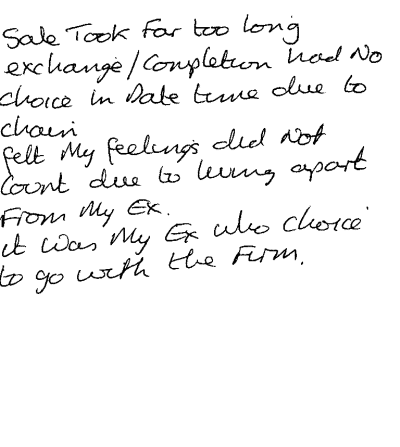 Sale Took Far too long
exchange/Completion had No
choice in Date time due to
chain
felt My feelings did Not
Count due to living apart
From My Ex.
it was My Ex who choice
to go with the Firm.